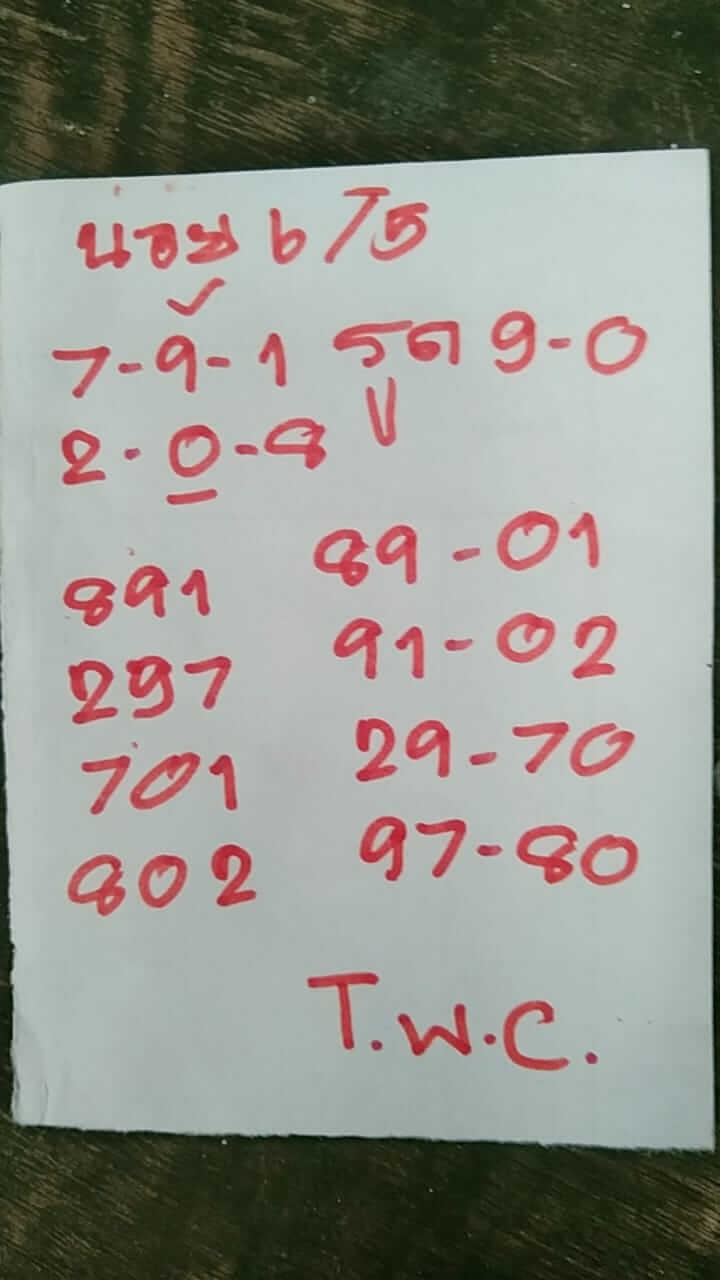 น้อย b 75
7-9-1 รูด 9-0
2-0-8
891 89-01
297 91-02
701 29-70
802 97-80
T.W.C.